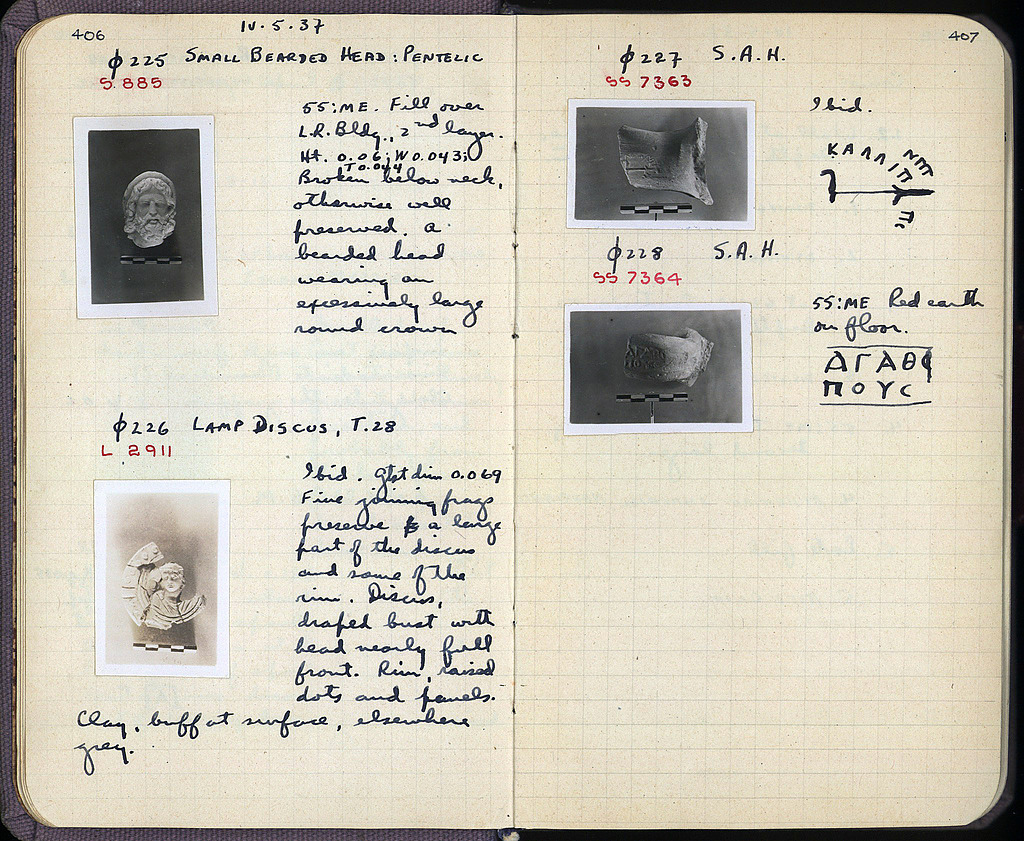 406
IV.5.37
φ225 SMALL BEARDED HEAD: PENTELIC
S 885
55:ME. Fill over
L.R. Bldg., 2nd layer.
Ht. 0.06; W 0.043;
T 0.044
Broken below neck,
otherwise well
preserved. A
bearded head
wearing an
excessively large
round crown
φ226 LAMP DISCUS, T.28
L 2911
Ibid. Gtst dim 0.069
Five joining frags
preserve a large
part of the discus
and some of the
rim. Discus,
draped bust with
head nearly full
front. Rim, raised
dots and panels.
Clay, buff at surface, elsewhere
grey.
407
φ227 S.A.H.
SS 7363
Ibid.
ΚΑΛΛΙΠ
φ228 S.A.H.
SS 7364
55:ME Red earth
on floor.
ΑΓΑΘΟ
ΠΟΥC